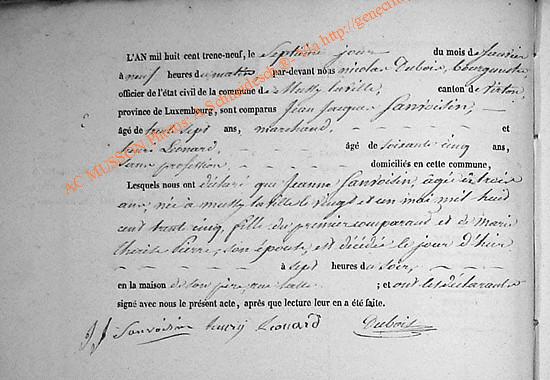 L'AN mil huit cent trene-neuf, le Septième jour du mois de Janvier
à neuf heures du matin par-devant nous nicolas Dubois, Bourgmestre
officier de l'état civil de la commune de Mussy la ville, canton de Virton,
province de Luxembourg, sont comparus Jean Jacques Sanvoisin,
âgé de sept ans, marchand, et
Henri Léonard, âgé de soixante cinq ans,
sans profession domiciliés en cette commune,
Lesquels nous ont déclaré que Jeanne Sanvoisin, agée de trois
ans, née à mussy la ville le vingt et un mai mil huit
cent trent cinq, fille du premier comparant et de Marie
Pierre, son épouse, est décédée le jour d'hier
à sept heures du soir,
en la maison de son père, rue ; et ont les déclarants
signé avec nous le présent acte, après que lecture leur en a été faite.
JJ Sanvoisin henry Leonard Dubois
AC MUSSON Photos: A Schmidesch ®- via http://gene